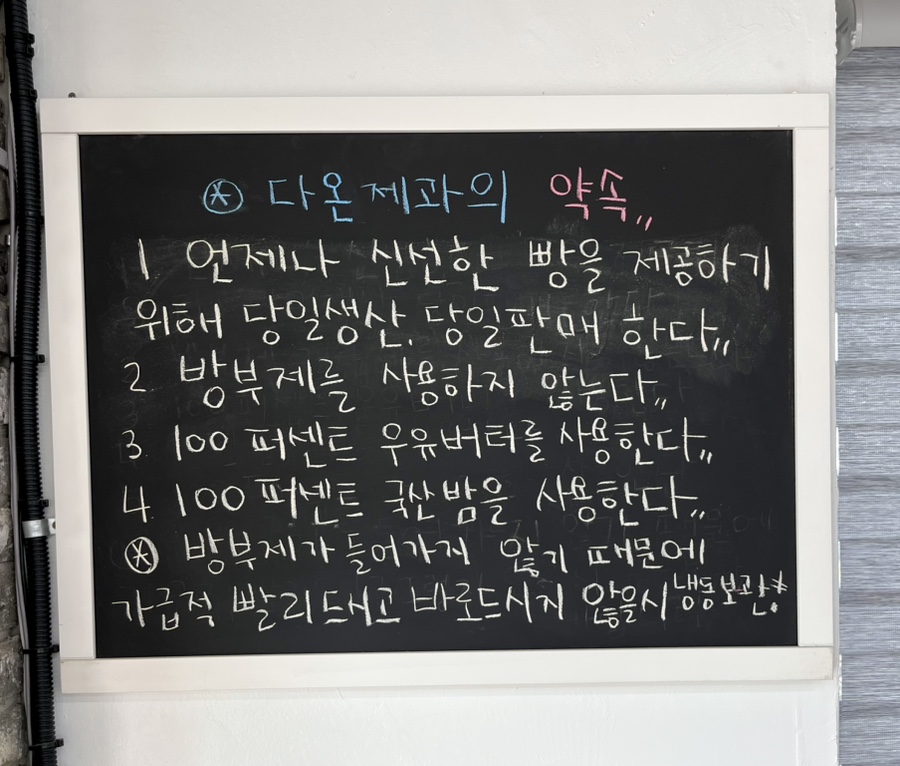 ⊛ 다온제과의 약속,,
1 언제나 신선한 빵을 제공하기
위해 당일생산. 당일판매 한다,,
2. 방부제를 사용하지 않는다,,
3. 100 퍼센트 우유버터를 사용한다,,
4. 100 퍼센트 국산밤을 사용한다,,
⊛ 방부제가 들어가지 않기 때문에
가급적 빨리드시고 바로드시지 않을시 냉동보관*